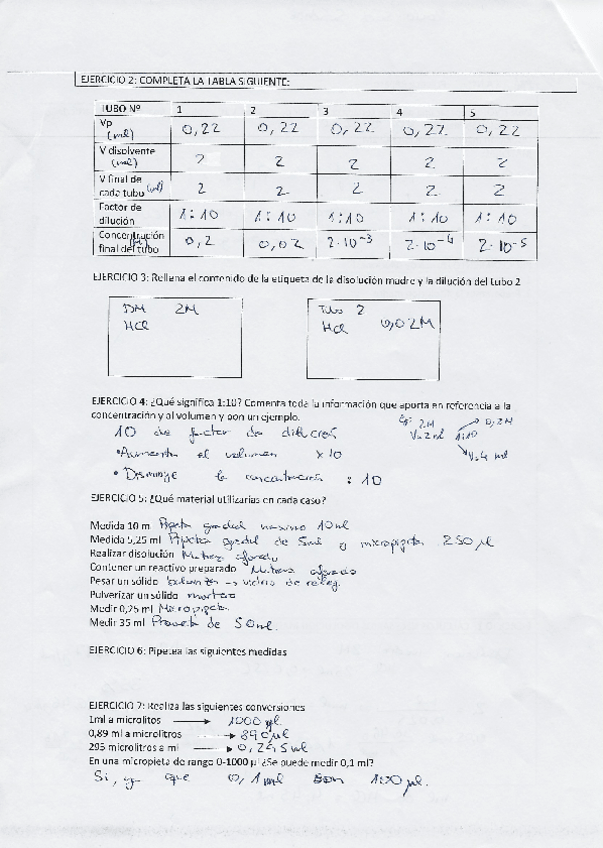 EJERCICIO 2: COMPLETA LA TABLA SIGUIENTE:
TUBO Nº 1 2 3 4 5
Vp (ml) 0,22 0,22 0,22 0,22 0,22
V disolvente (ml) 2 2 2 2 2
V final de cada tubo (ml) 2 2 2 2 2
Factor de dilución 1:10 1:10 1:10 1:10 1:10
Concentración final del tubo 0,2 0,02 2·10⁻³ 2·10⁻⁴ 2·10⁻⁵
EJERCICIO 3: Rellena el contenido de la etiqueta de la disolución madre y la dilución del tubo 2
DM 2M
HCl
Tubo 2
HCl 0,02M
EJERCICIO 4: ¿Qué significa 1:10? Comenta toda la información que aporta en referencia a la
concentración y al volumen y pon un ejemplo.
Ej: 2M 0,2M
V=2ml 1:10
10 de factor de
• Aumenta el volumen x10
• Disminuye la concentración : 10
EJERCICIO 5: ¿Qué material utilizarías en cada caso?
Medida 10 m Pipeta 10ml
Medida 5,25 ml Pipeta de 5ml y micropipeta 250 µl
Realizar disolución Matraz aforado
Contener un reactivo preparado Matraz aforado
Pesar un sólido balanza → vidrio de reloj.
Pulverizar un sólido mortero
Medir 0,25 ml Micropipeta.
Medir 35 ml Probeta de 50ml.
EJERCICIO 6: Pipetea las siguientes medidas
EJERCICIO 7: Realiza las siguientes conversiones
1ml a microlitos → 1000 µl
0,89 ml a microlitros → 890µl
295 microlitros a ml → 0,295ml
En una micropieta de rango 0-1000 µl ¿Se puede medir 0,1 ml?
Si, ya que 0,1ml son 100 µl.